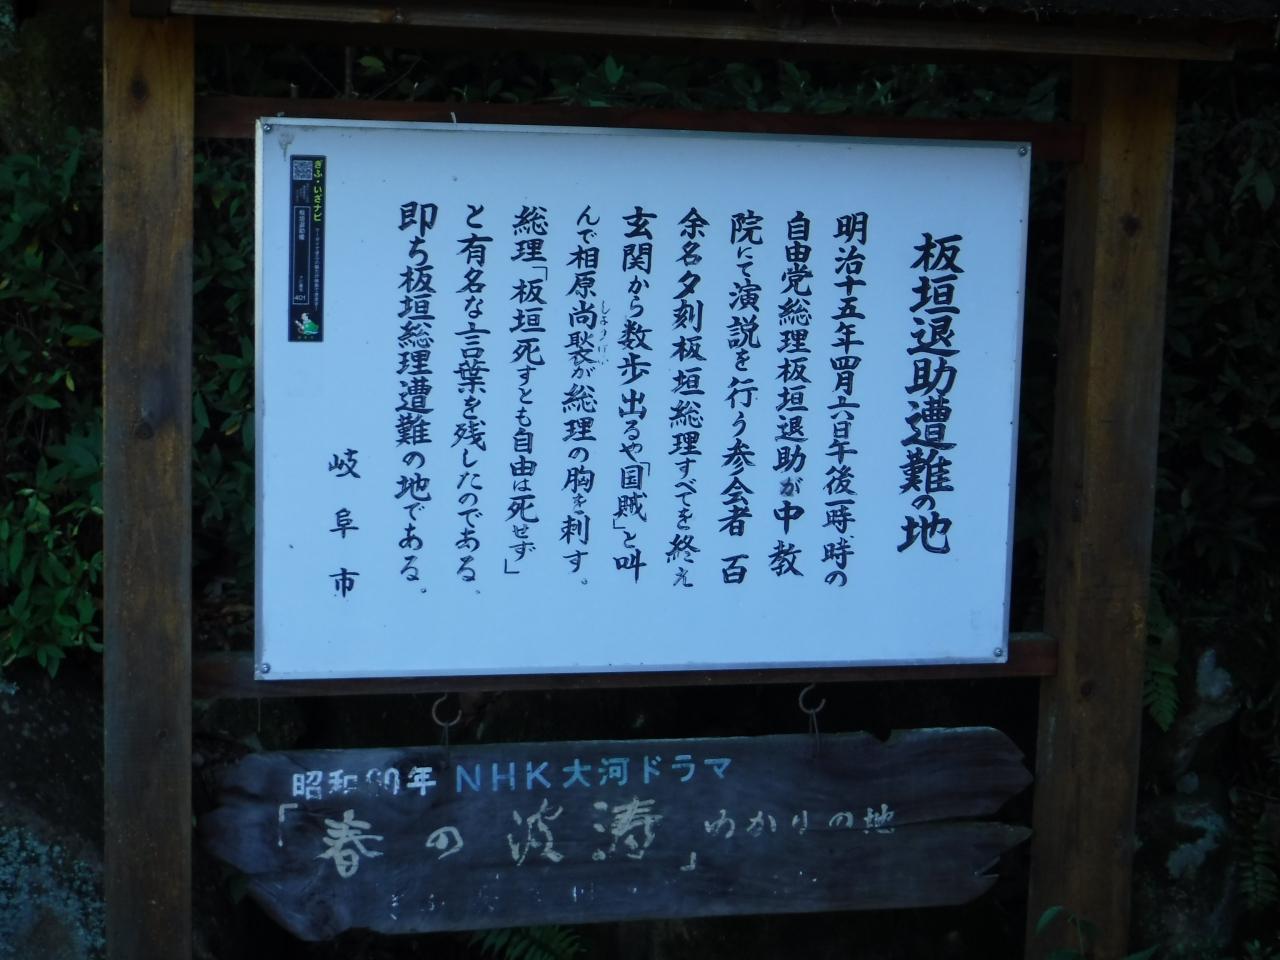 板垣退助遭難の地
明治十五年四月六日午後一時、時の
自由党総理板垣退助が中教
院にて演説を行う参会者 百
余名夕刻板垣総理すべてを終え
玄関から数歩出るや「国賊」と叫
んで相原尚褧が総理の胸を刺す。
しょうけい
総理「板垣死すとも自由は死せず」
と有名な言葉を残したのである。
即ち板垣総理遭難の地である。
岐阜市
ぎふ・いざナビ
401
昭和60年 NHK大河ドラマ
「春の波涛」ゆかりの地